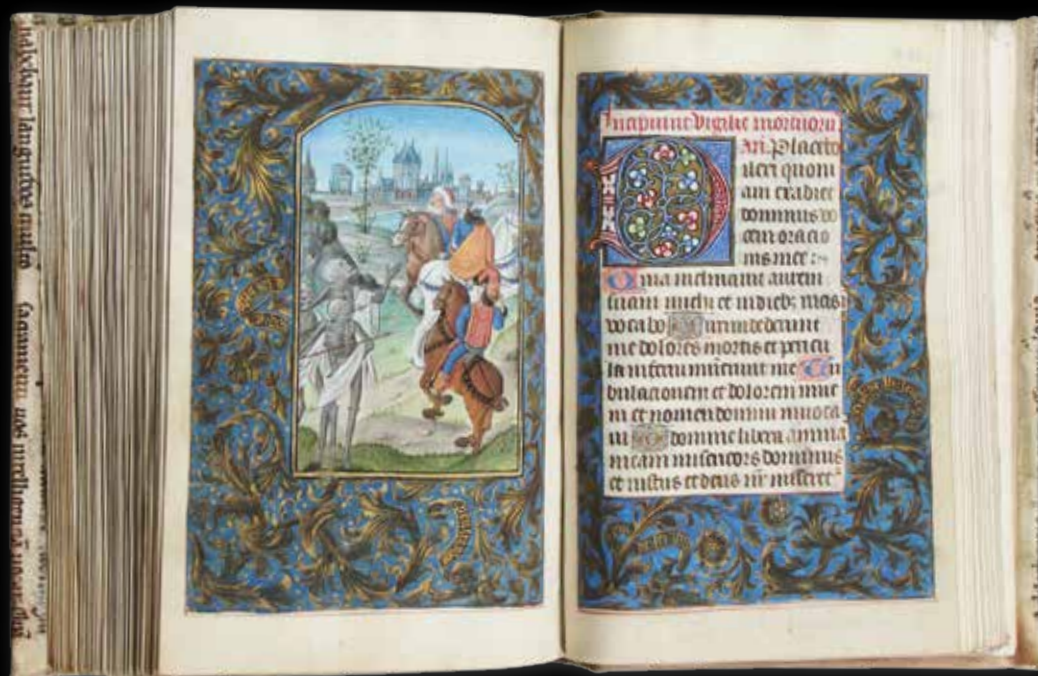 Incipiunt Vigilie mortuorū
An. Placebo
Dilexi quoni
am exaudiet
dominus vo
cem oracio
nis mee :~
Quia inclinavit aurem
suam michi et in diebꝫ meis
vocabo Circumdederunt
me dolores mortis et pericu
la inferni invenerunt me Tri
bulacionem et dolorem inve
ni et nomen domini invoca
vi O domine libera anima
meam misericors dominus
et iustus et deus nr̄ miseret